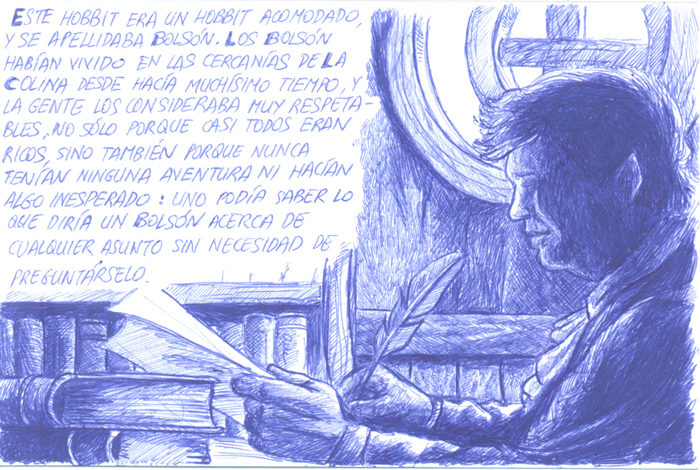 ESTE HOBBIT ERA UN HOBBIT ACOMODADO,
Y SE APELLIDABA BOLSÓN. LOS BOLSÓN
HABÍAN VIVIDO EN LAS CERCANÍAS DE LA
COLINA DESDE HACÍA MUCHÍSIMO TIEMPO, Y
LA GENTE LOS CONSIDERABA MUY RESPETA-
BLES, NO SÓLO PORQUE CASI TODOS ERAN
RICOS, SINO TAMBIÉN PORQUE NUNCA
TENÍAN NINGUNA AVENTURA NI HACÍAN
ALGO INESPERADO: UNO PODÍA SABER LO
QUE DIRÍA UN BOLSÓN ACERCA DE
CUALQUIER ASUNTO SIN NECESIDAD DE
PREGUNTÁRSELO.